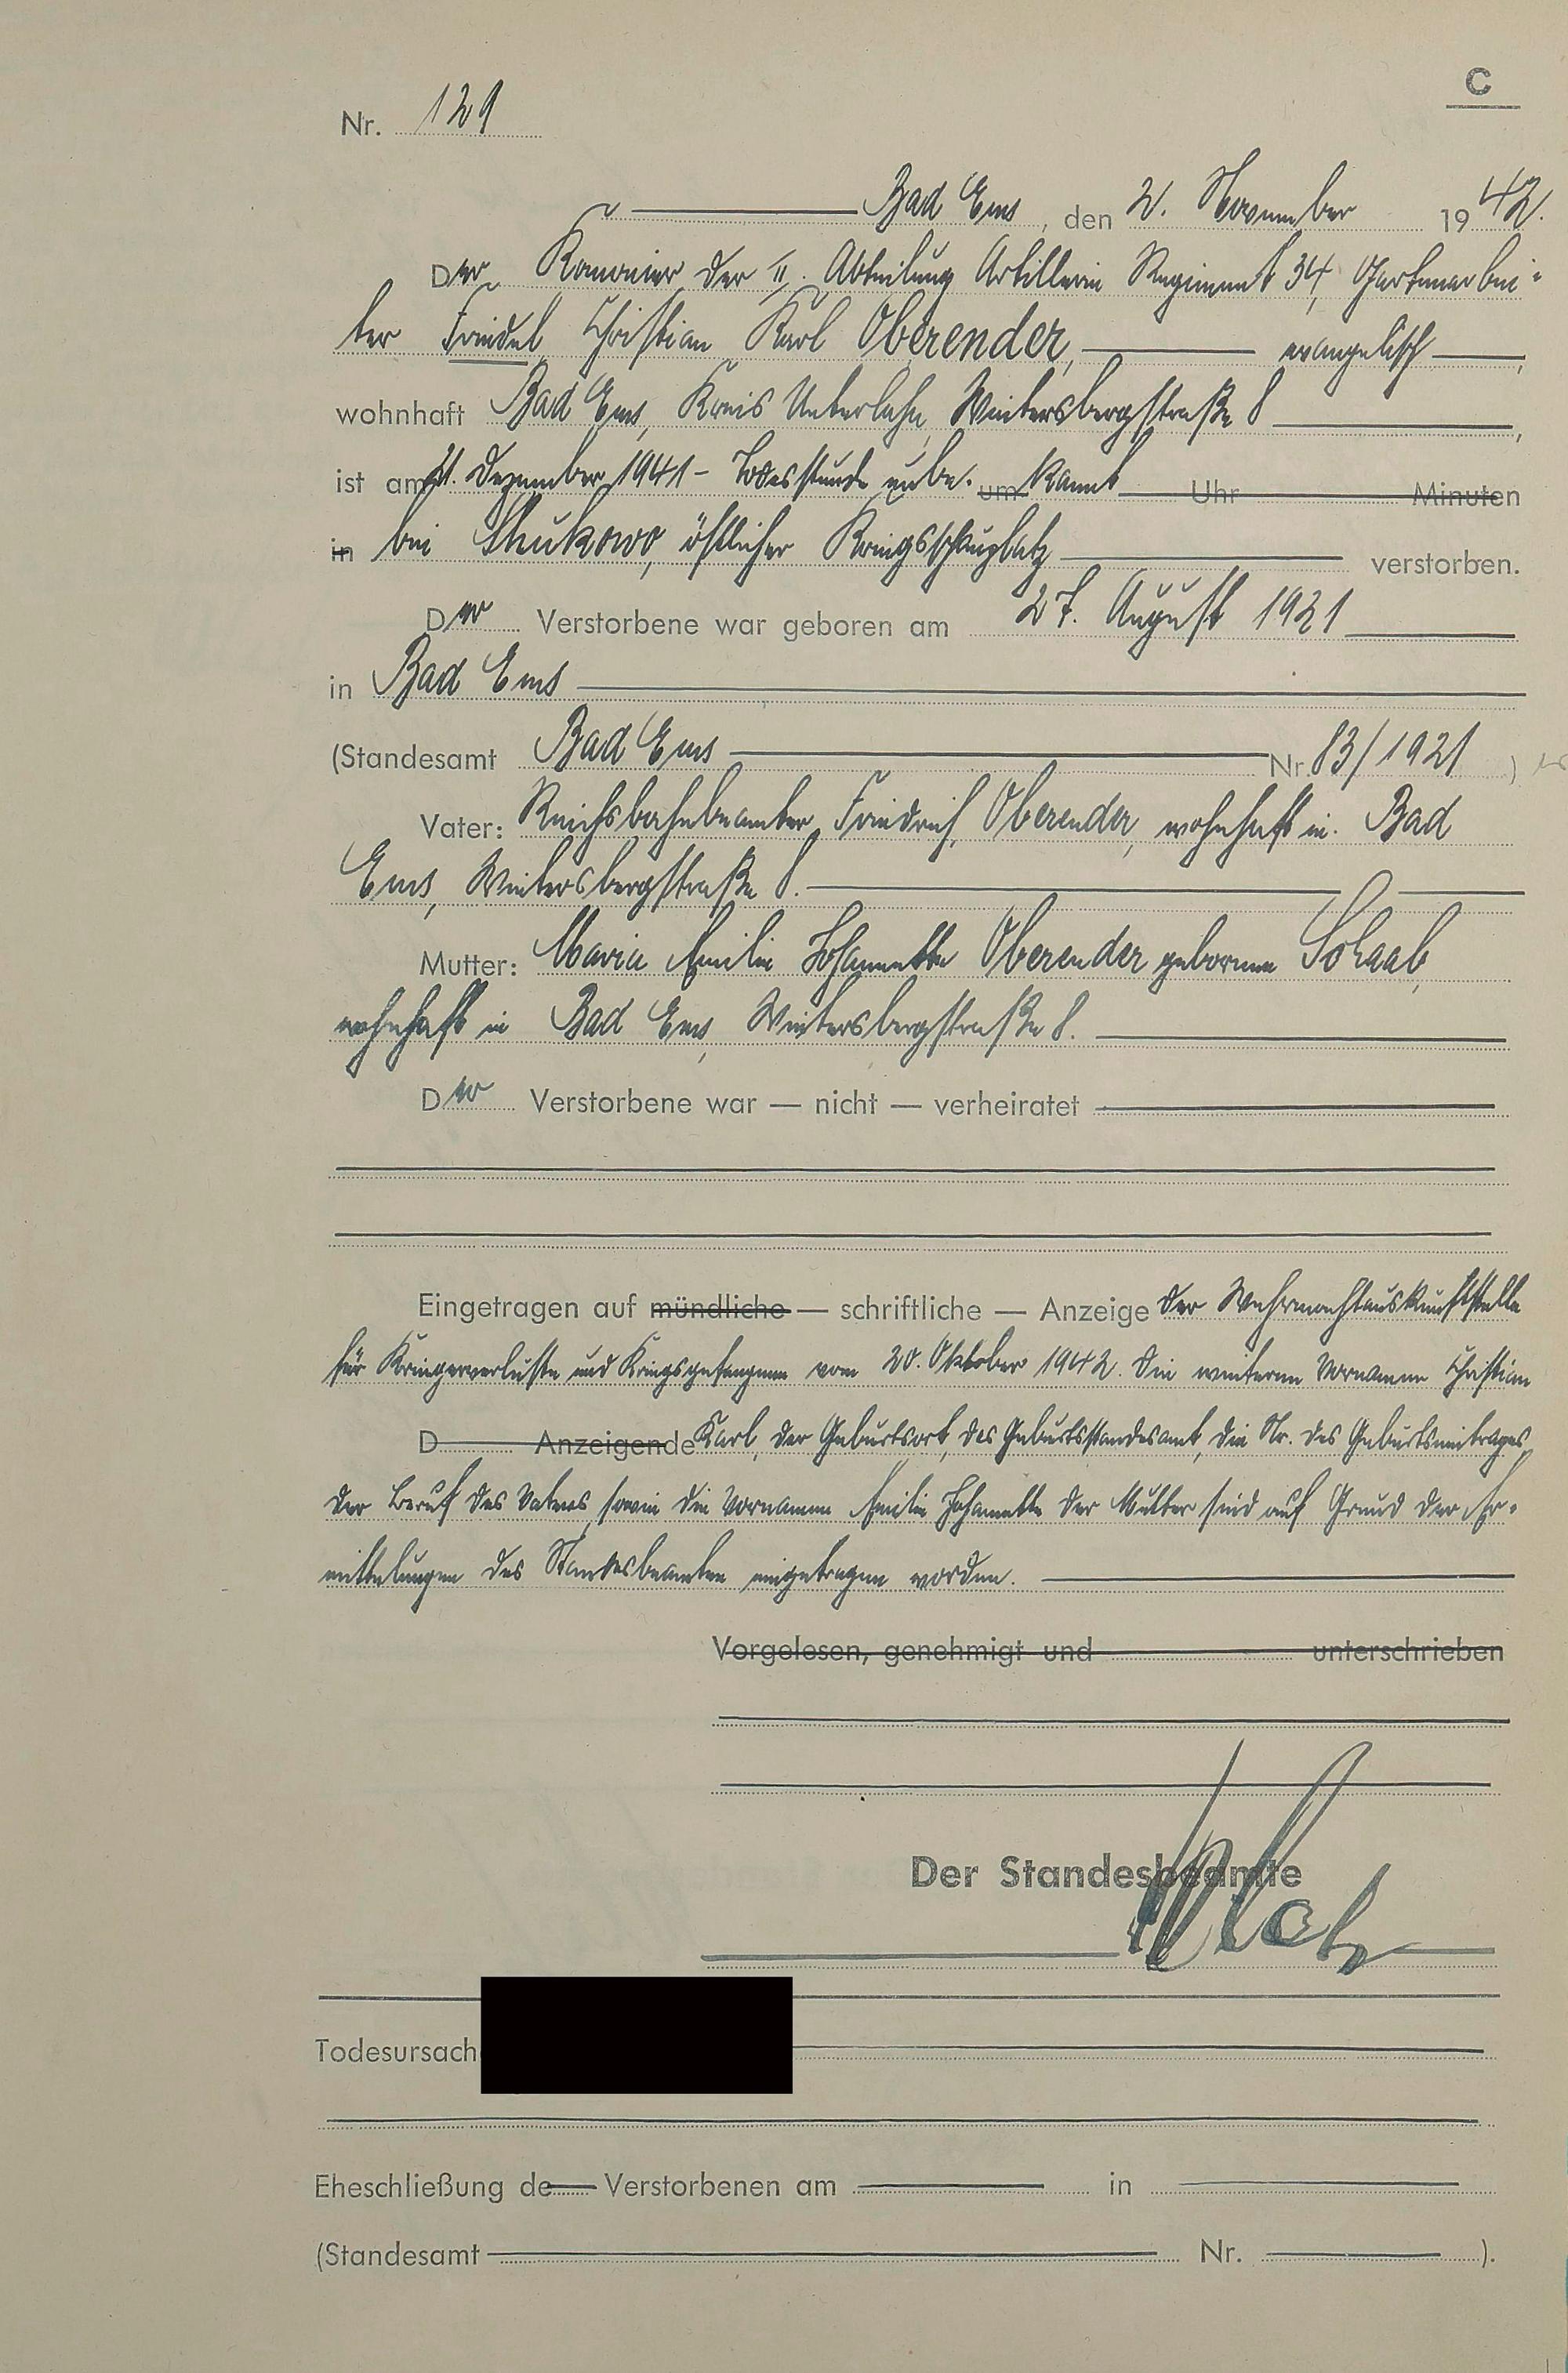 C
Nr. 129
Bad Ems, den 2. November 1942.
Der Kanonier der II. Abteilung Artillerie Regiment 34, Gartenarbei-
ter Friedel Christian Karl Oberender, evangelisch,
wohnhaft Bad Ems, Kreis Unterlahn, Wintersbergstraße 8,
ist am 21. Dezember 1941 - Todesstunde unbe- um kannt Uhr Minuten
in bei Shukowo, östlicher Kriegsschauplatz verstorben.
Der Verstorbene war geboren am 27. August 1921
in Bad Ems
(Standesamt Bad Ems Nr. 83/1921)
Vater: Reichsbahnbeamter Friedrich Oberender, wohnhaft in Bad
Ems, Wintersbergstraße 8.
Mutter: Maria Emilie Johannette Oberender geborene Schaab,
wohnhaft in Bad Ems, Wintersbergstraße 8.
Der Verstorbene war — nicht — verheiratet
Eingetragen auf mündliche — schriftliche — Anzeige der Wehrmachtauskunftstelle
für Kriegerverluste und Kriegsgefangene vom 20. Oktober 1942. Die weiteren Vornamen Christian
D Anzeigende Karl, der Geburtsort, das Geburtsstandesamt, die Nr. des Geburtseintrages,
der Beruf des Vaters sowie die Vornamen Emilie Johannette der Mutter sind auf Grund der Er-
mittelungen des Standesbeamten eingetragen worden.
Vorgelesen, genehmigt und unterschrieben
Der Standesbeamte
Todesursach
Eheschließung de Verstorbenen am in
(Standesamt Nr. ).